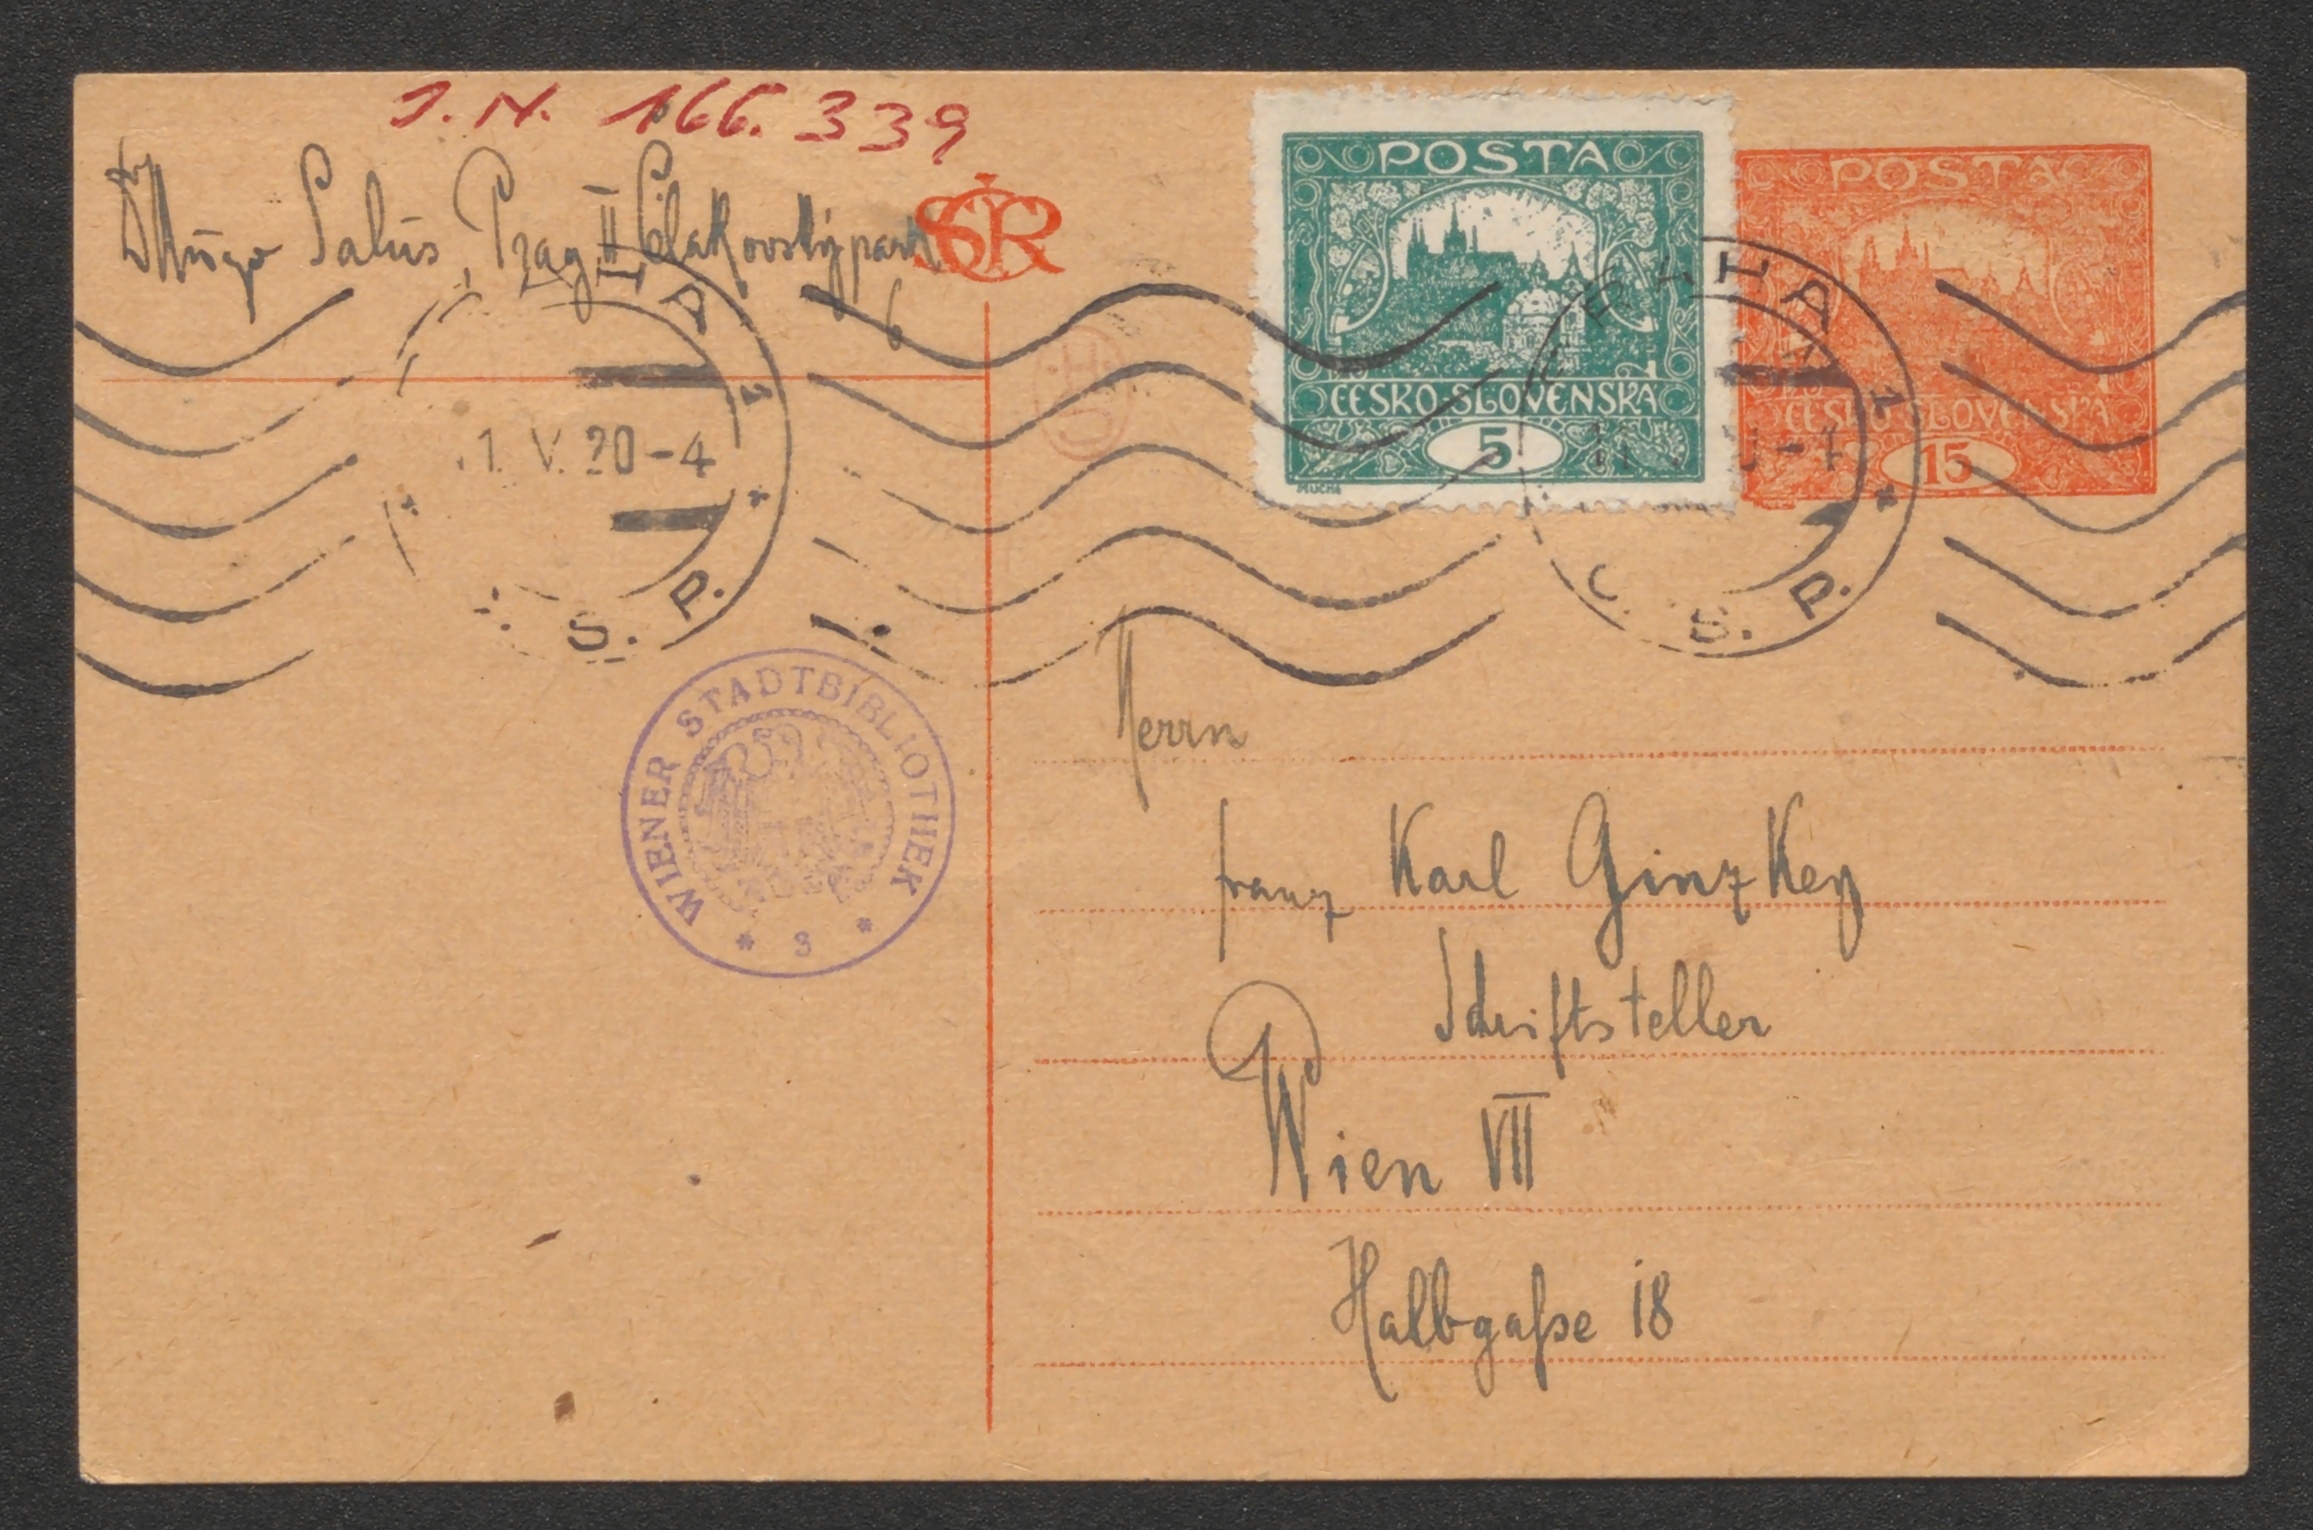 J.N. 166.339
Dr Hugo Salus, Prag II Čelakovskýpark
6
ČSR
POSTA
ČESKO-SLOVENSKÁ
5
MUCHA
POSTA
ČESKO-SLOVENSKÁ
15
PRAHA 1
1. V. 20-4
Č. S. P.
PRAHA 1
Č. S. P.
WIENER STADTBIBLIOTHEK
* 3 *
Herrn
Franz Karl Ginzkey
Schriftsteller
Wien VII
Halbgaſse 18